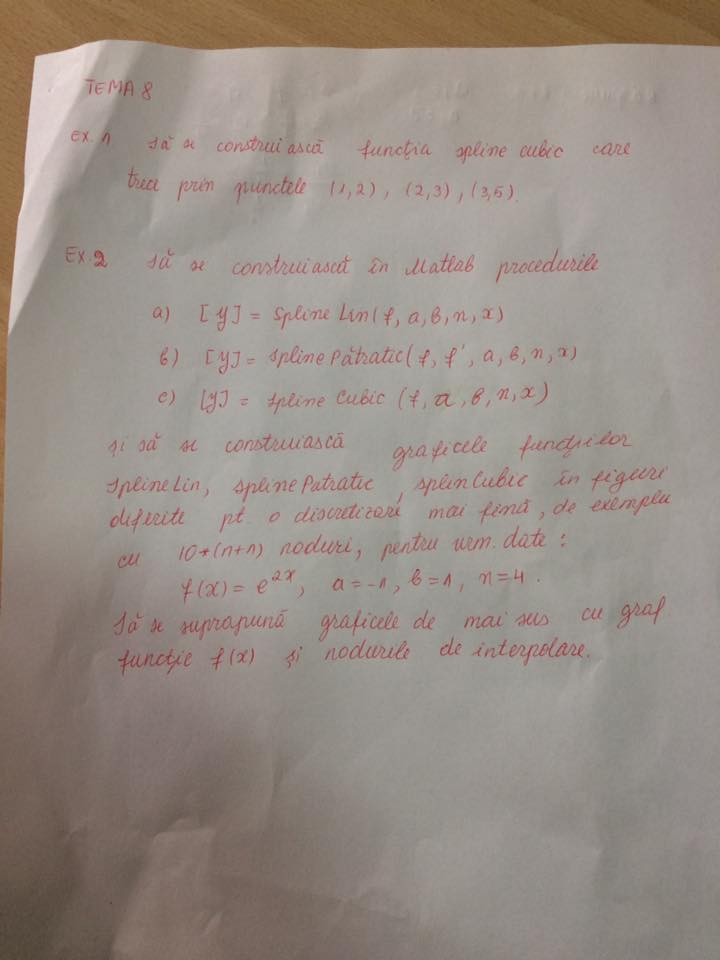 TEMA 8
Ex. 1 Să se construiască funcția spline cubic care
trece prin punctele (1,2), (2,3), (3,5).
Ex. 2 Să se construiască în Matlab procedurile
a) [y] = Spline Lin(f, a, b, n, x)
b) [y] = Spline Pătratic(f, f', a, b, n, x)
c) [y] = Spline Cubic (f, a, b, n, x)
și să se construiască graficele funcțiilor
SplineLin, splinePatratic, splinCubic în figuri
diferite pt. o discretizari mai fină, de exemplu
cu 10*(n+1) noduri, pentru urm. date:
f(x) = e^{2x}, a = -1, b = 1, n = 4.
Să se suprapună graficele de mai sus cu graf.
funcție f(x) și nodurile de interpolare.